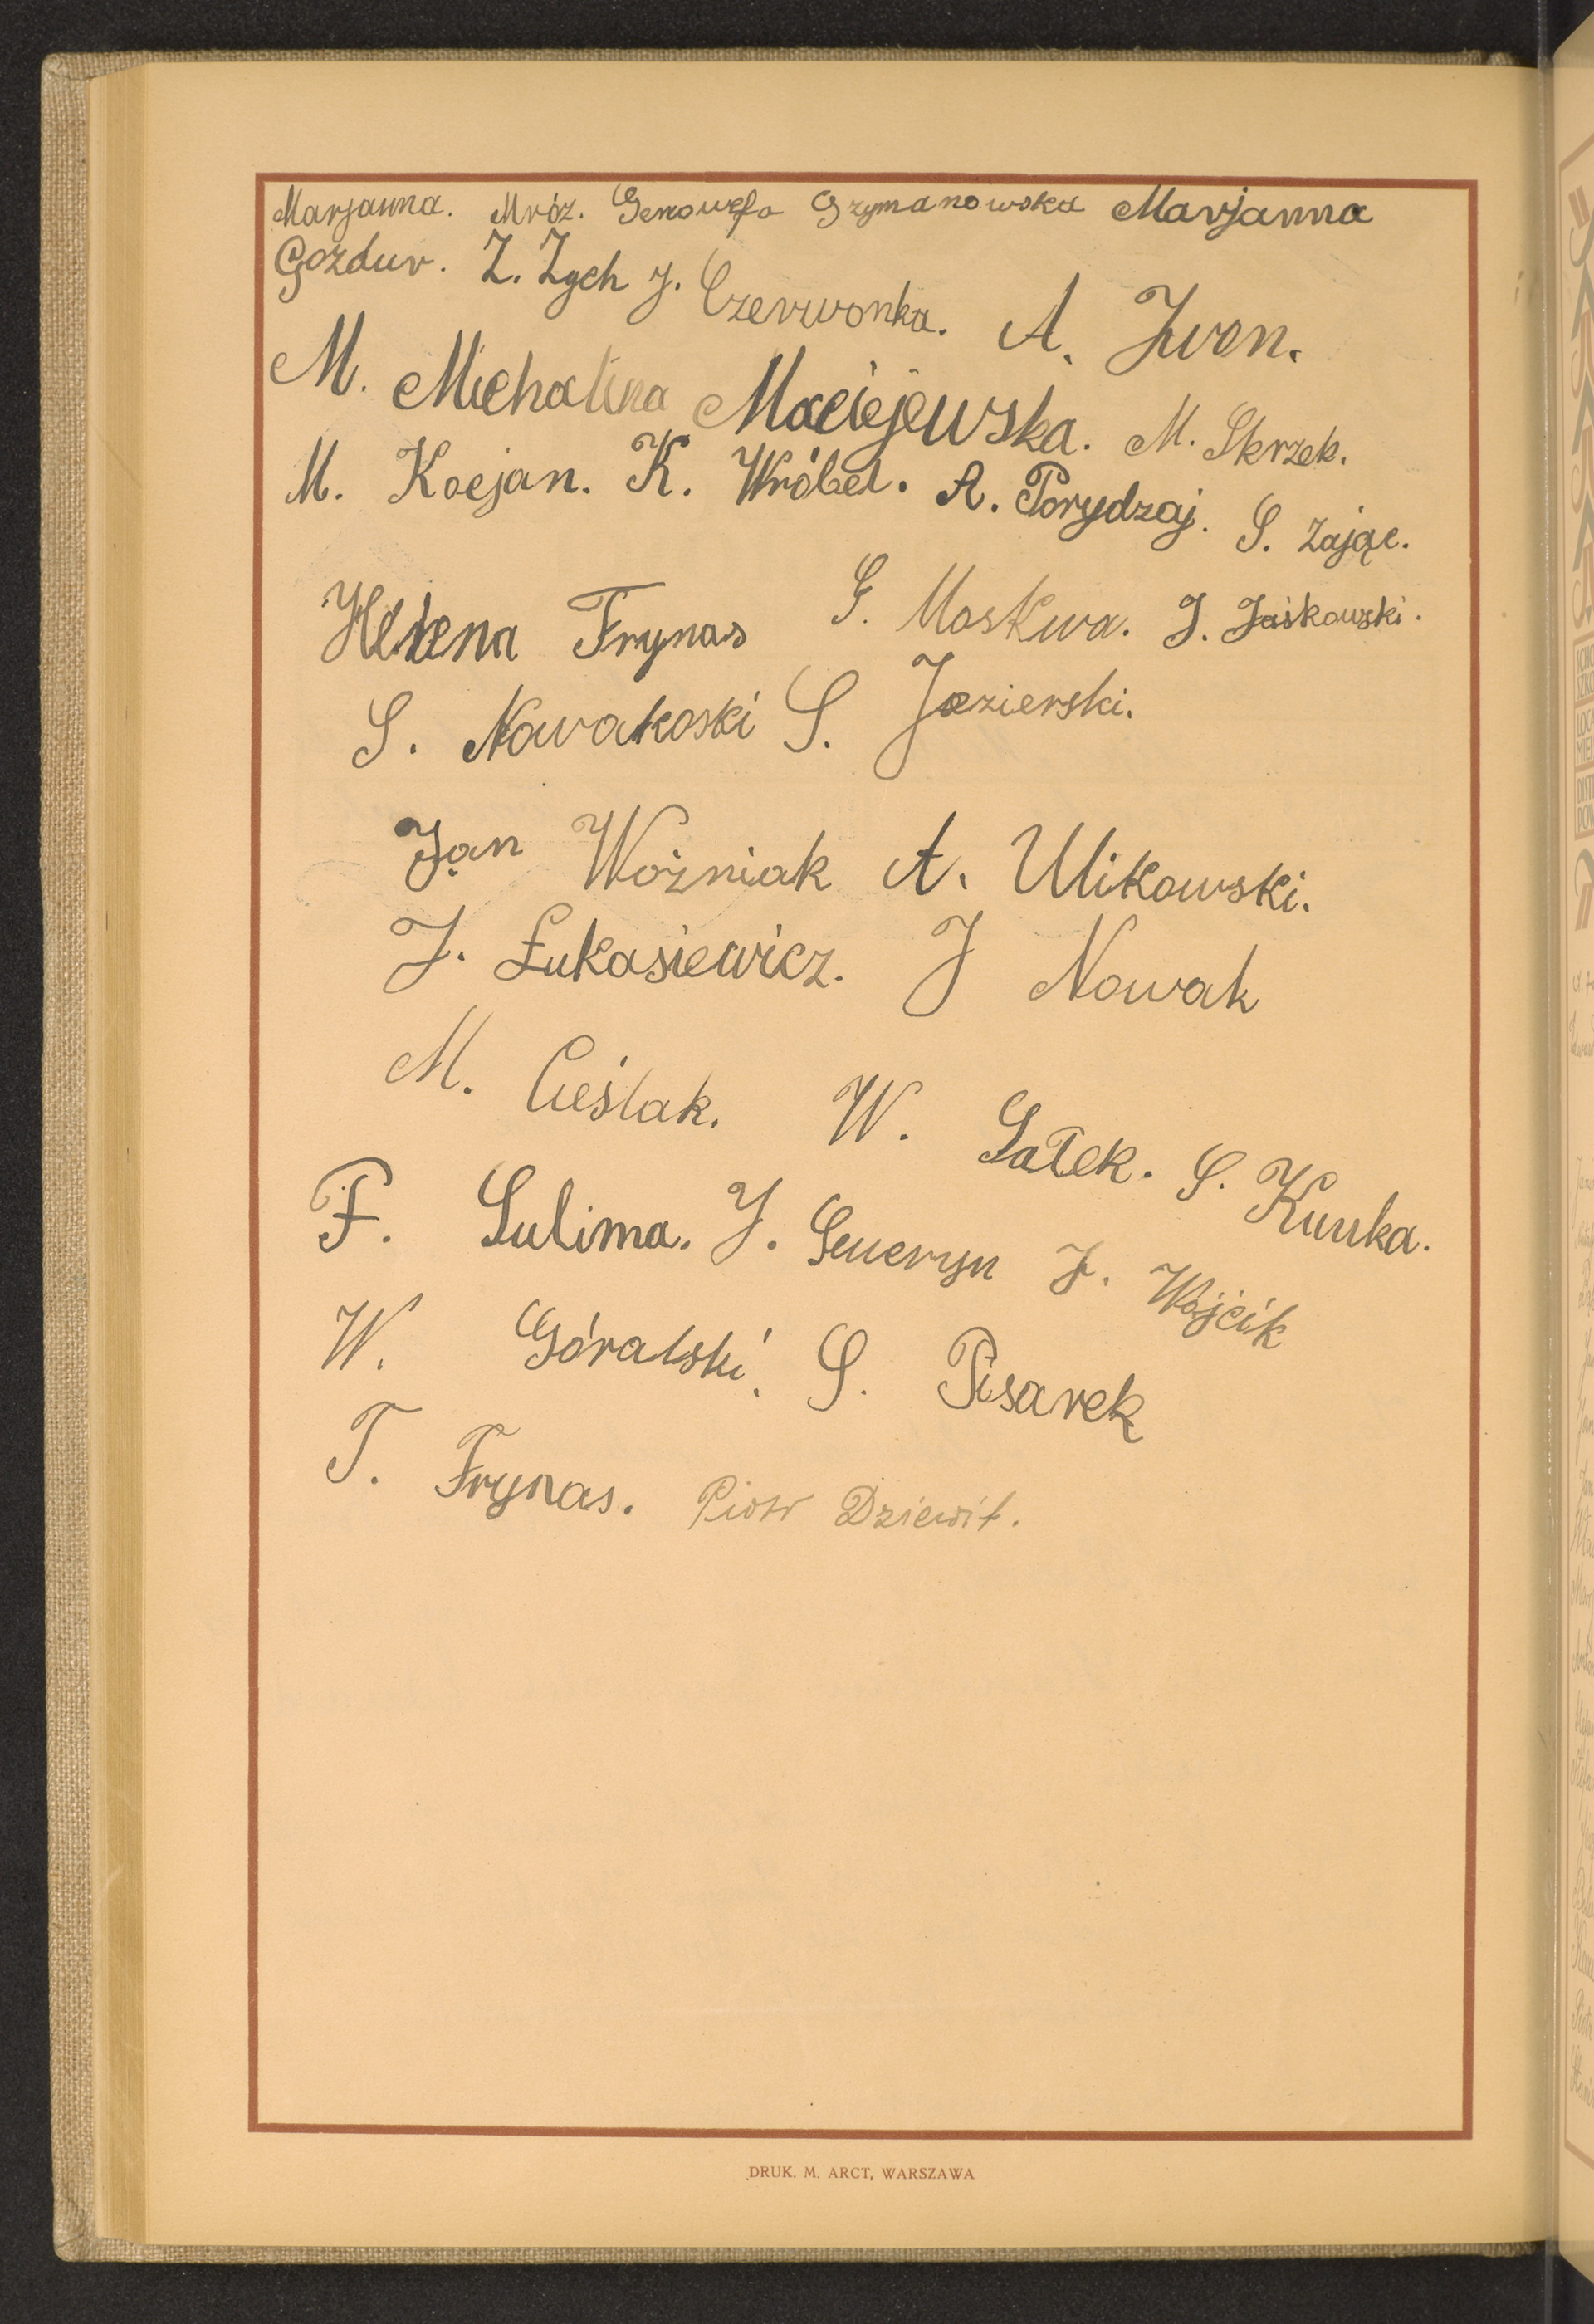 Marjanna. Mróz. Genowefa Szymanowska Marjanna
Gozdur. Z. Zych J. Czerwonka. A. Iwon.
M. Michalina Maciejewska. M. Skrzek.
M. Kocjan. K. Wróbel. A. Porydzaj. S. Zając.
Helena Frynas G. Moskwa. J. Jaśkowski.
S. Nowakoski S. Jezierski.
Jan Woźniak A. Ulikowski.
J. Łukasiewicz. J Nowak
M. Cieślak. W. Sałek. S. Kunka.
F. Sulima. J. Seweryn J. Wójcik
W. Góralski. S. Pisarek
T. Frynas. Piotr Dziewit.
DRUK. M. ARCT, WARSZAWA